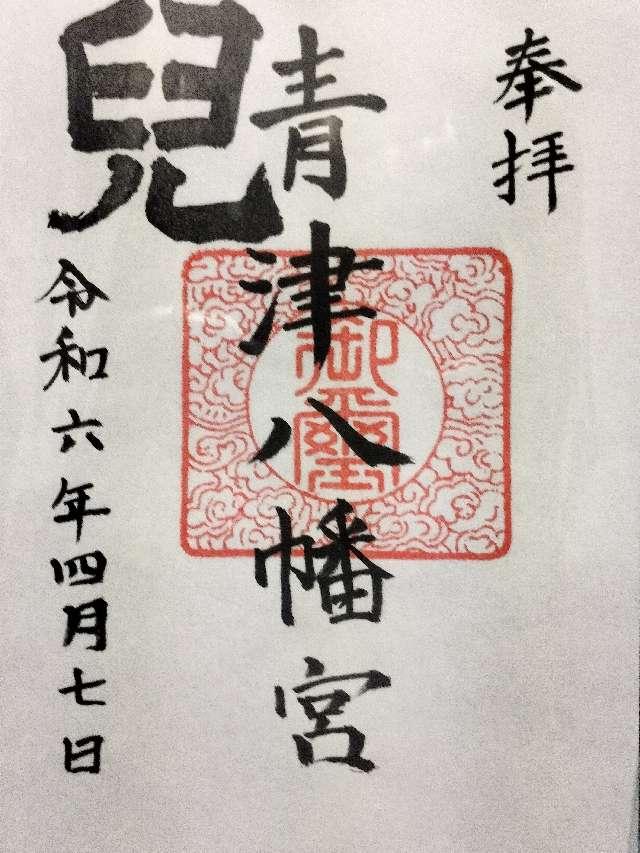 奉拝
青津八幡宮
御璽
兒
令和六年四月七日